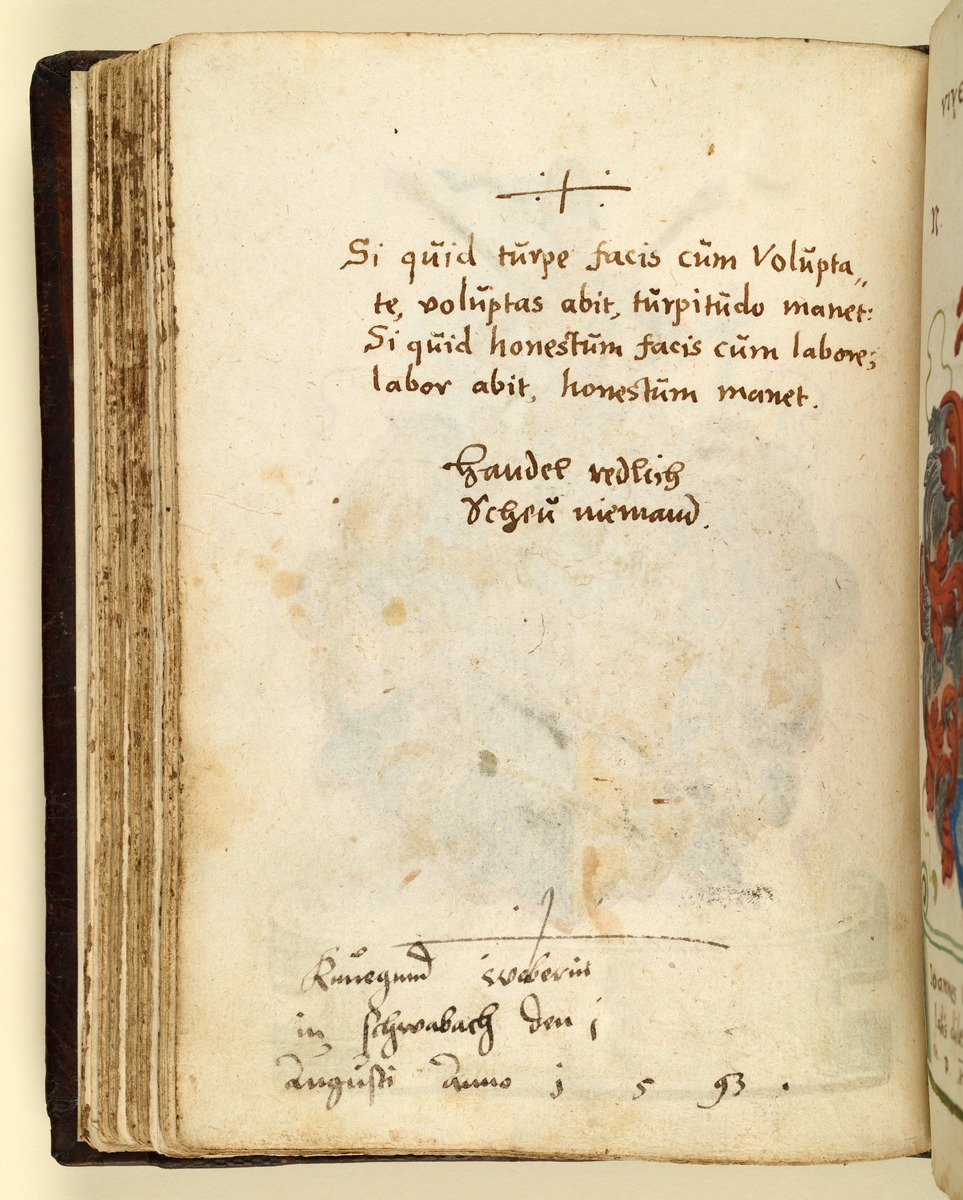 Si quid turpe facis cum Volupta„
te, voluptas abit, turpitudo manet:
Si quid honestum facis cum labore;
labor abit, honestum manet.
Handel redlich
Scheu niemand.
Kunegund Weberin
in schwabach den j
Augusti Anno j 5 93 .
Joannes